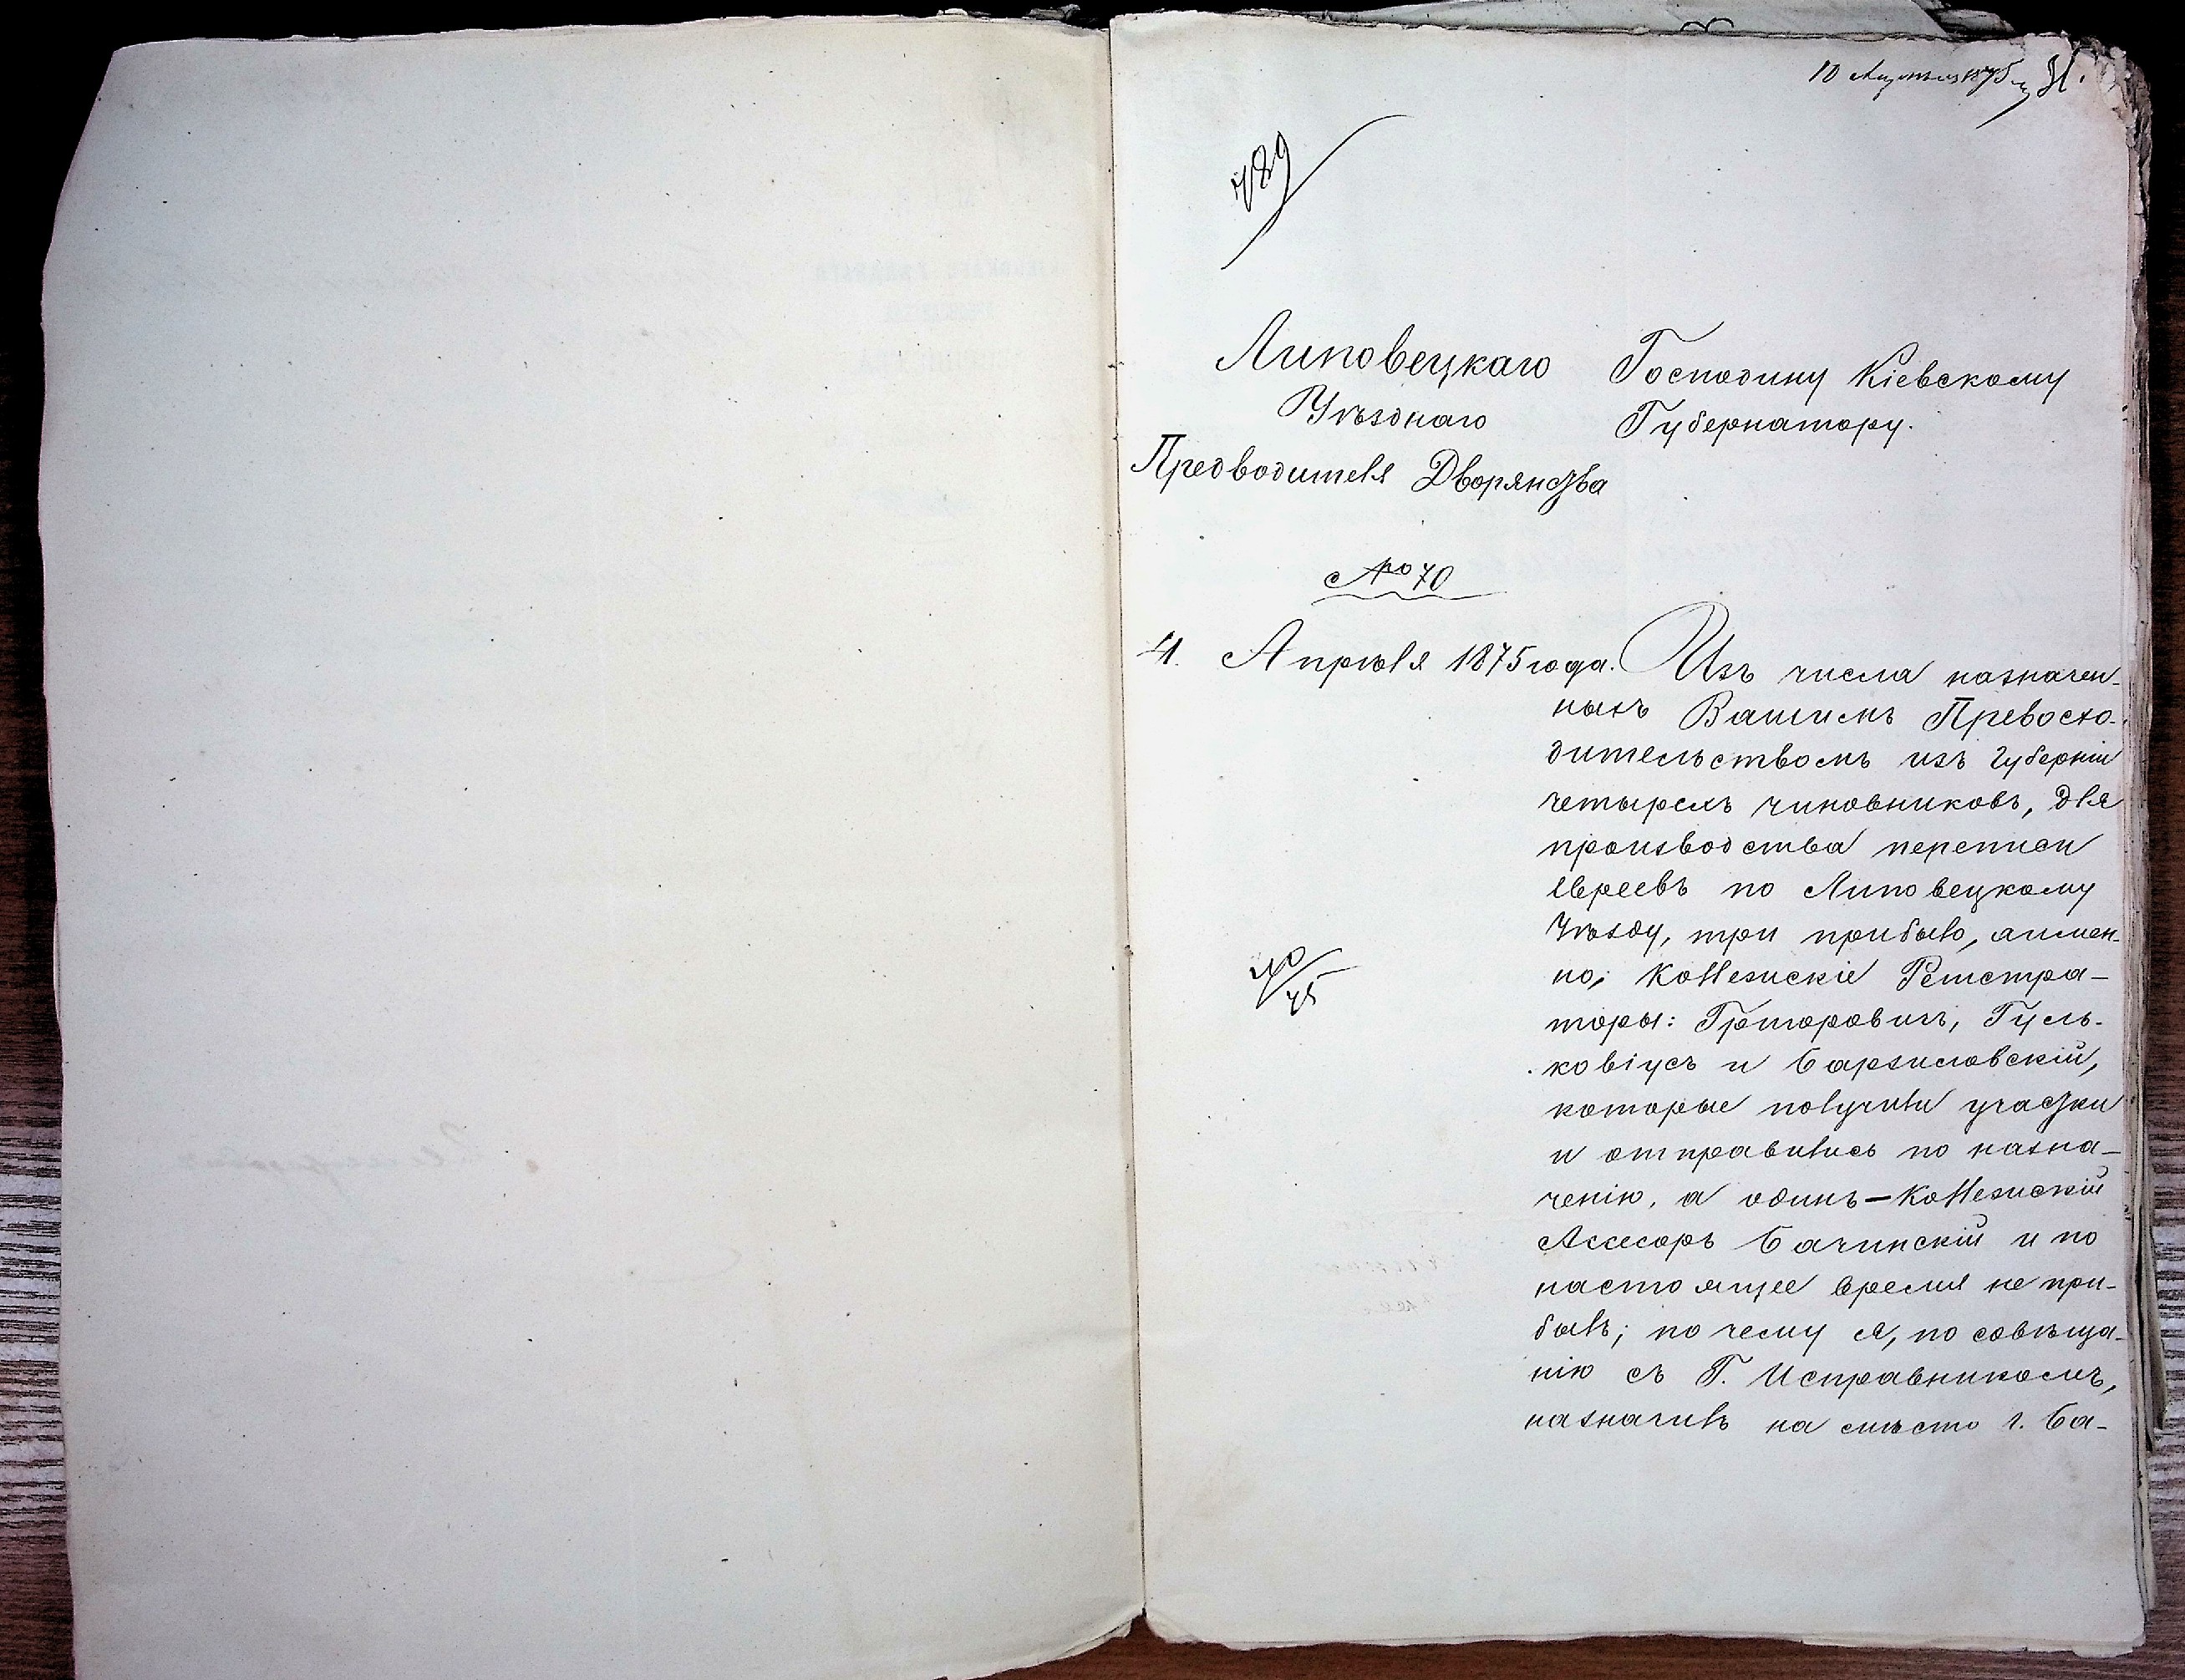 10 Апрѣля 1875
789
Липовецкаго
Уѣзднаго
Предводителя Дворянства
№ 70
4. Апрѣля 1875 года.
70/75
Господину Кіевскому
Губернатору.
Изъ числа назначен-
ныхъ Вашимъ Превосхо-
дительствомъ изъ Губерніи
четырехъ чиновниковъ, для
производства переписи
евреевъ по Липовецкому
Уѣзду, три прибыло, а имен-
но; Коллежскіе Регистра-
торы: Григоровичъ, Гуль-
ковіусъ и Барзиловскій,
которые получили участки
и отправились по назна-
ченію, а одинъ—Коллежскій
Асесоръ Бачинскій и по
настоящее время не при-
былъ; по чему я, по совѣща-
нію съ Г. Исправникомъ,
назначилъ на мѣсто г. Ба-